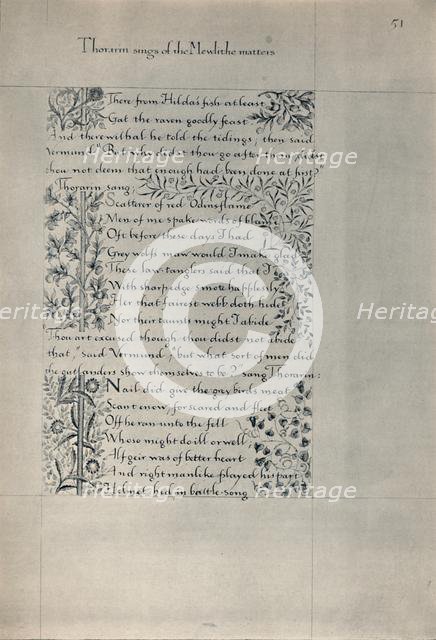 51
Thorarin sings of the Mewlithe matters
There from Hilda's fish at least
Gat the raven goodly feast
And therewithal he told the tidings; then said
Vermund "But why didst thou go after them
thou not deem that enough had been done at first?
Thorarin sang:
Scatterer of red Odinsflame
Men of me spake words of blame
Oft before these days I had
Grey wolf's maw would I make glad
These law-tanglers said that I
With sharp edge smote haplessly
Her that fairest webb doth hide
Nor their taunts might I abide
Thou art excused though thou didst not abide
that," said Vermund, "but what sort of men did
the outlanders show themselves to be? sang Thorarin:
Nail did give the grey birds meat
Scant enow, for scared and fleet
Off he ran unto the fell
Whose might do ill or well;
Alfgeir was of better heart
And right manlike played his part
Helmet hed in battle-song
Heritage
Heritage
Heritage
Heritage
Heritage
Heritage
Images
Images
Images
Images
Images